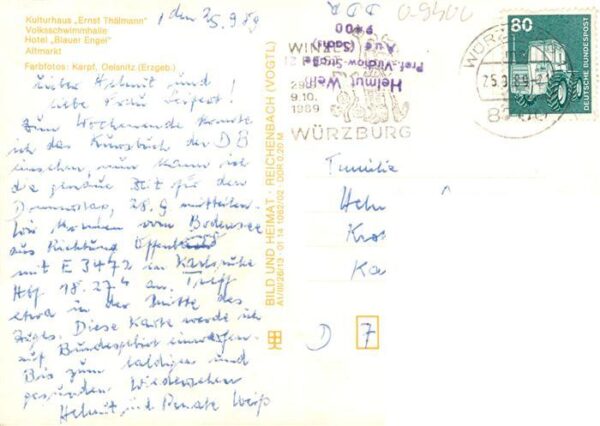 Kulturhaus „Ernst Thälmann"
Volksschwimmhalle
Hotel „Blauer Engel"
Altmarkt
Farbfotos: Karpf, Oelsnitz (Erzgeb.)
, den 25.9.89
Lieber Helmut und
liebe Frau Seifert!
Zum Wochenende konnte
ich das Kursbuch der DB
einsehen, nun kann ich
die genaue Zeit für den
Donnerstag, 28.9. mitteilen.
Wir kommen vom Bodensee
aus Richtung Offenburg
mit E 3472 in Karlsruhe
Hbf 18.27 an. Treff
etwa in der Mitte des
Zuges. Diese Karte werde ich
auf Bundesgebiet einwerfen.
Bis zum baldigen und
gesunden Wiedersehen
Helmut und Renate Weiß
BILD UND HEIMAT · REICHENBACH (VOGTL)
A1/III/26/13 01 14 1082/02 DDR 0,20 M
DDR
0-9400
Helmut Weiß
Prof.-Virchow-Straße 21
Aue (Sachs)
9400
WIN
29.9.
9.10.
1989
WÜRZBURG
WÜRZ
25.9.89-21
87 00
80
DEUTSCHE BUNDESPOST
Familie
Helm
Kro
Ka
D 7